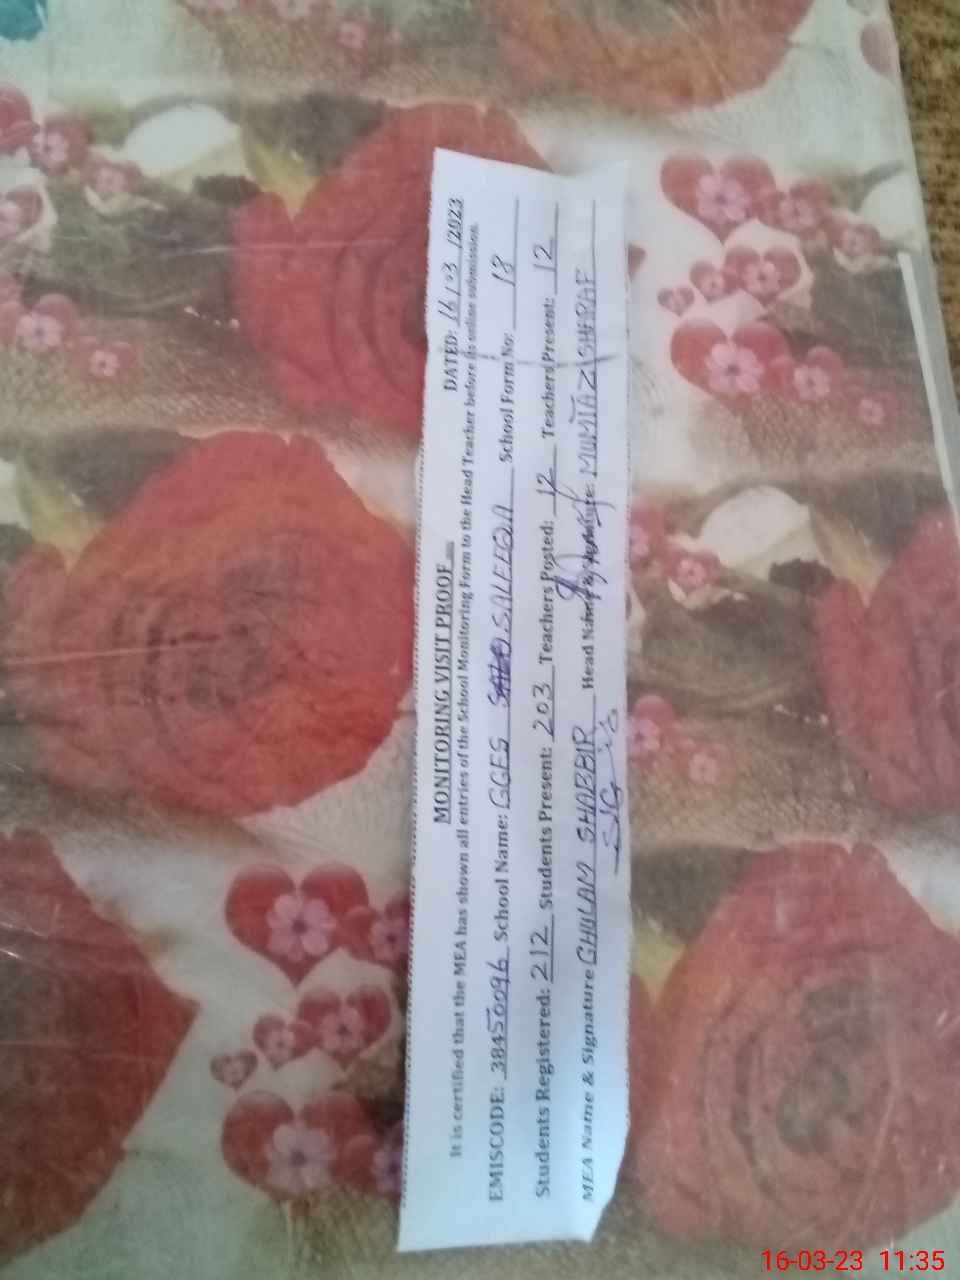 MONITORING VISIT PROOF
DATED: 16/03/2023
It is certified that the MEA has shown all entries of the School Monitoring Form to the Head Teacher before its online submission.
EMISCODE: 38450096 School Name: GGES SALEEQA School Form No: 18
Students Registered: 212 Students Present: 203 Teachers Posted: 12 Teachers Present: 12
MEA Name & Signature GHULAM SHABBIR Head Name & Signature: MUMTAZ
16-03-23 11:35